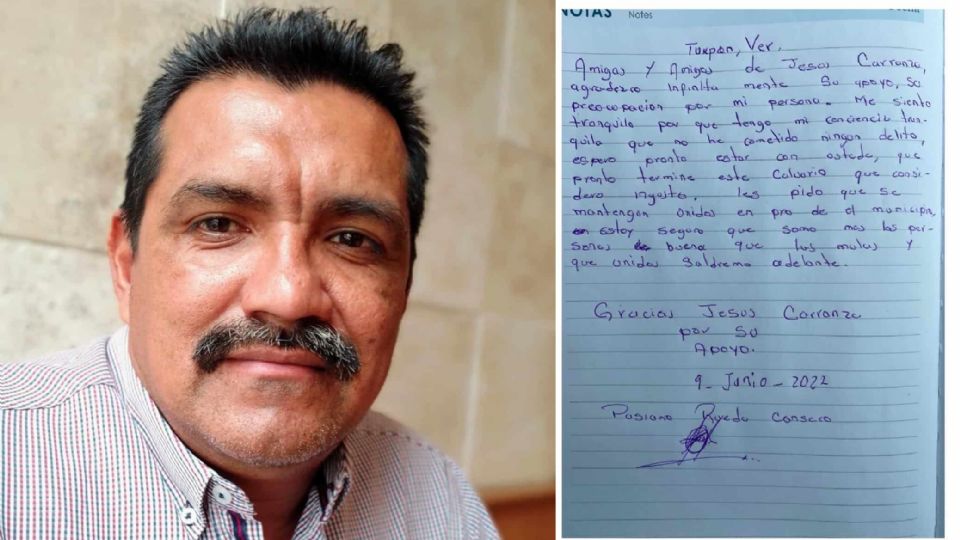 NOTAS Notes
Tuxpan, Ver.
Amigas y Amigos de Jesus Carranza,
agradezco infinita mente Su apoyo, su
preocupacion por mi persona. Me siento
tranquilo por que tengo mi conciencia tran-
quila que no he cometido ningun delito,
espero pronto estar con ustede, que
pronto termine este Calvario que consi-
dero injusto. les pido que se
mantengan unidos en pro de el municipio,
Estoy seguro que somo mas las per-
sonas buena que las malas y
que unidos Saldremo adelante.
Gracias Jesus Carranza
por Su
Apoyo.
9 - Junio - 2022
Pasiano Rueda Canseco